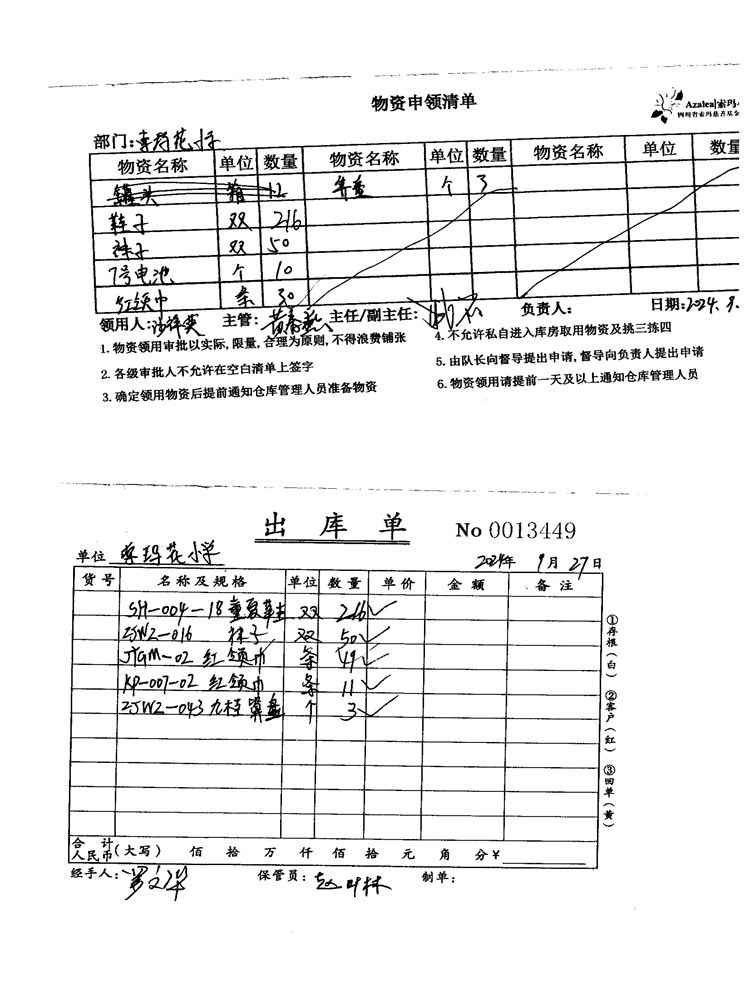 物资申领清单
Azalea|索玛
四川省索玛慈善基金
部门:索玛花小学
物资名称 单位 数量 物资名称 单位 数量 物资名称 单位 数量
罐头 箱 12 算盘 个 3
鞋子 双 216
袜子 双 50
7号电池 个 10
红领巾 条 30
领用人: 主管: 主任/副主任: 负责人: 日期:2024.9.
1. 物资领用审批以实际,限量,合理为原则,不得浪费铺张
4. 不允许私自进入库房取用物资及挑三拣四
2. 各级审批人不允许在空白清单上签字
5. 由队长向督导提出申请,督导向负责人提出申请
3. 确定领用物资后提前通知仓库管理人员准备物资
6. 物资领用请提前一天及以上通知仓库管理人员
出库单
No 0013449
单位 索玛花小学 2024年 9月 27日
货号 名称及规格 单位 数量 单价 金额 备注
SH-004-18 童夏单鞋 双 216
ZJWZ-016 袜子 双 50
JYGM-02 红领巾 条 49
KP-007-02 红领巾 条 11
ZJWZ-043 九档算盘 个 3
①存根(白) ②客户(红) ③回单(黄)
合计人民币(大写) 佰 拾 万 仟 佰 拾 元 角 分¥
经手人: 保管员: 制单: